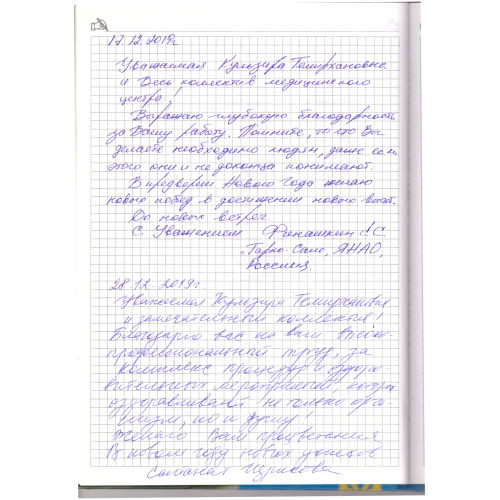 17.12.2019г
Уважаемая Кульзира Темирхановна
и Весь коллектив медицинского
центра!
Выражаю глубокую благодарность
за Вашу работу. Помните, то что Вы
делаете необходимо людям, даже если
этого они и не доконца понимают.
В предверии Нового Года желаю
новых побед в достижении новых высот.
До новых встреч.
С Уважением
г. Тарко-Сале, ЯНАО,
Россия
28.12.2019г
Уважаемая Кульзира Темирхановна
и замечательный коллектив!
Благодарю вас за ваш высоко-
профессиональный труд, за
комплекс процедур и оздоро-
вительных мероприятий, которые
оздоравливают не только орга-
низм, но и душу!
Желаю Вам процветания
В новом году новых успехов